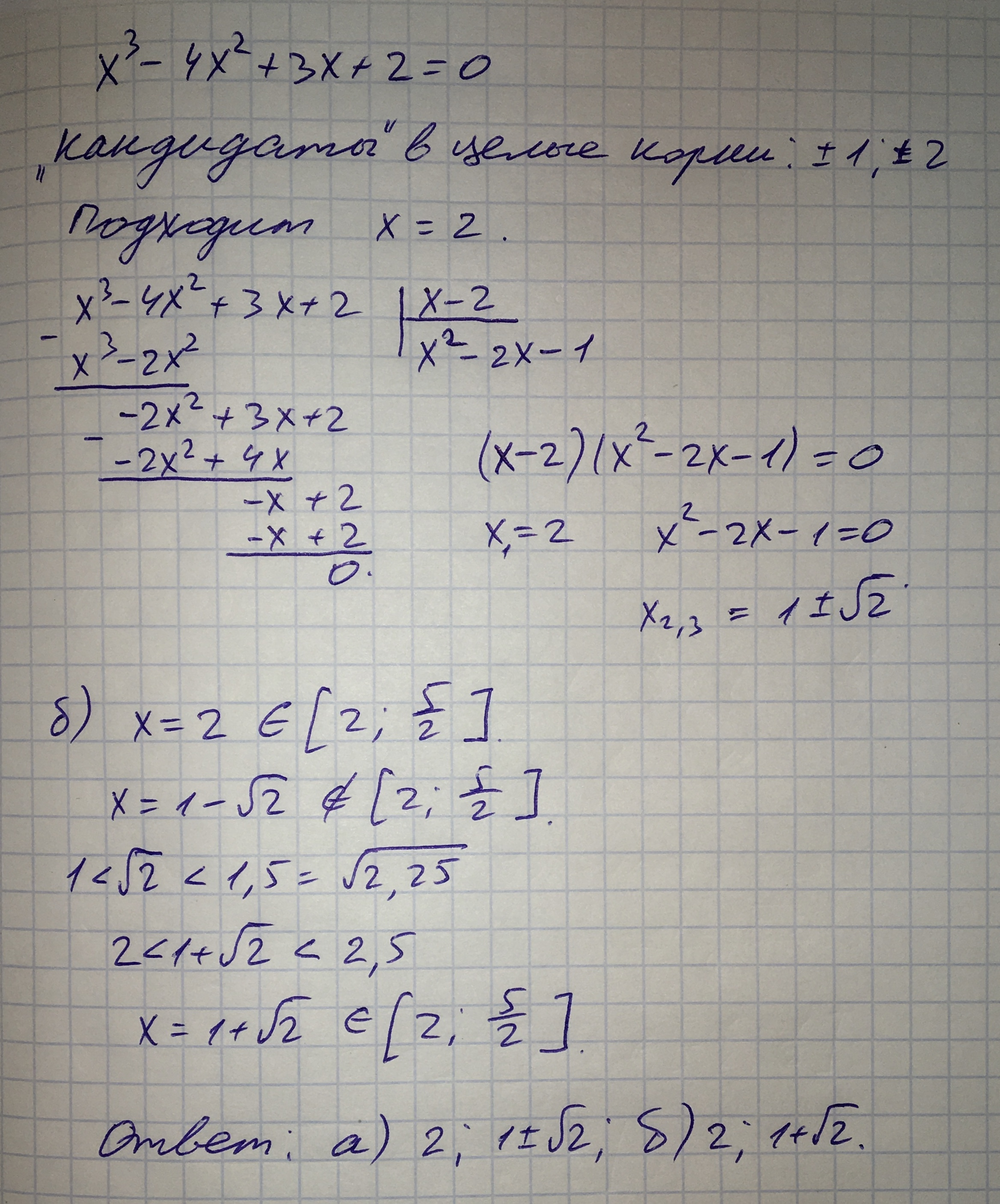 x³ - 4x² + 3x + 2 = 0
„Кандидаты" в целые корни: ± 1; ± 2
Подходит x = 2.
x³ - 4x² + 3x + 2 | x - 2
- x³ - 2x² x² - 2x - 1
-2x² + 3x + 2
- -2x² + 4x (x-2)(x² - 2x - 1) = 0
-x + 2
-x + 2 x₁ = 2 x² - 2x - 1 = 0
0.
x₂,₃ = 1 ± √2.
б) x = 2 ∈ [2; 5/2].
x = 1 - √2 ∉ [2; 5/2].
1 < √2 < 1,5 = √2,25
2 < 1 + √2 < 2,5
x = 1 + √2 ∈ [2; 5/2].
Ответ: а) 2; 1 ± √2; б) 2; 1 + √2.